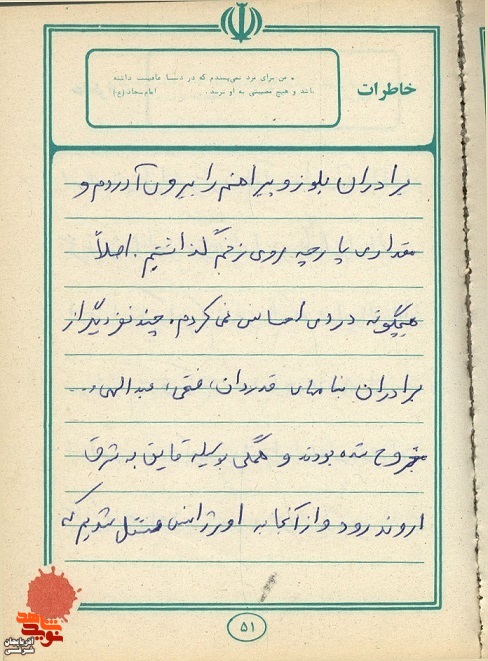 خاطرات
• من برای مرد نمی‌پسندم که در دنیا عافیت داشته
باشد و هیچ مصیبتی به او نرسد. امام سجاد (ع)
برادران بلوز و پیراهنم را بیرون آوردم و
مقداری پارچه روی زخم گذاشتیم. اصلاً
هیچگونه دردی احساس نمی کردم، چند نفر دیگر از
برادران بنامهای قدردان، فتحی، عبدالهی و..
مجروح شده بودند و همگی بوسیله قایق به شرق
اروند رود و از آنجا به اورژانس منتقل شدیم که
۵۱
نوید شاهد
آذربایجان شرقی